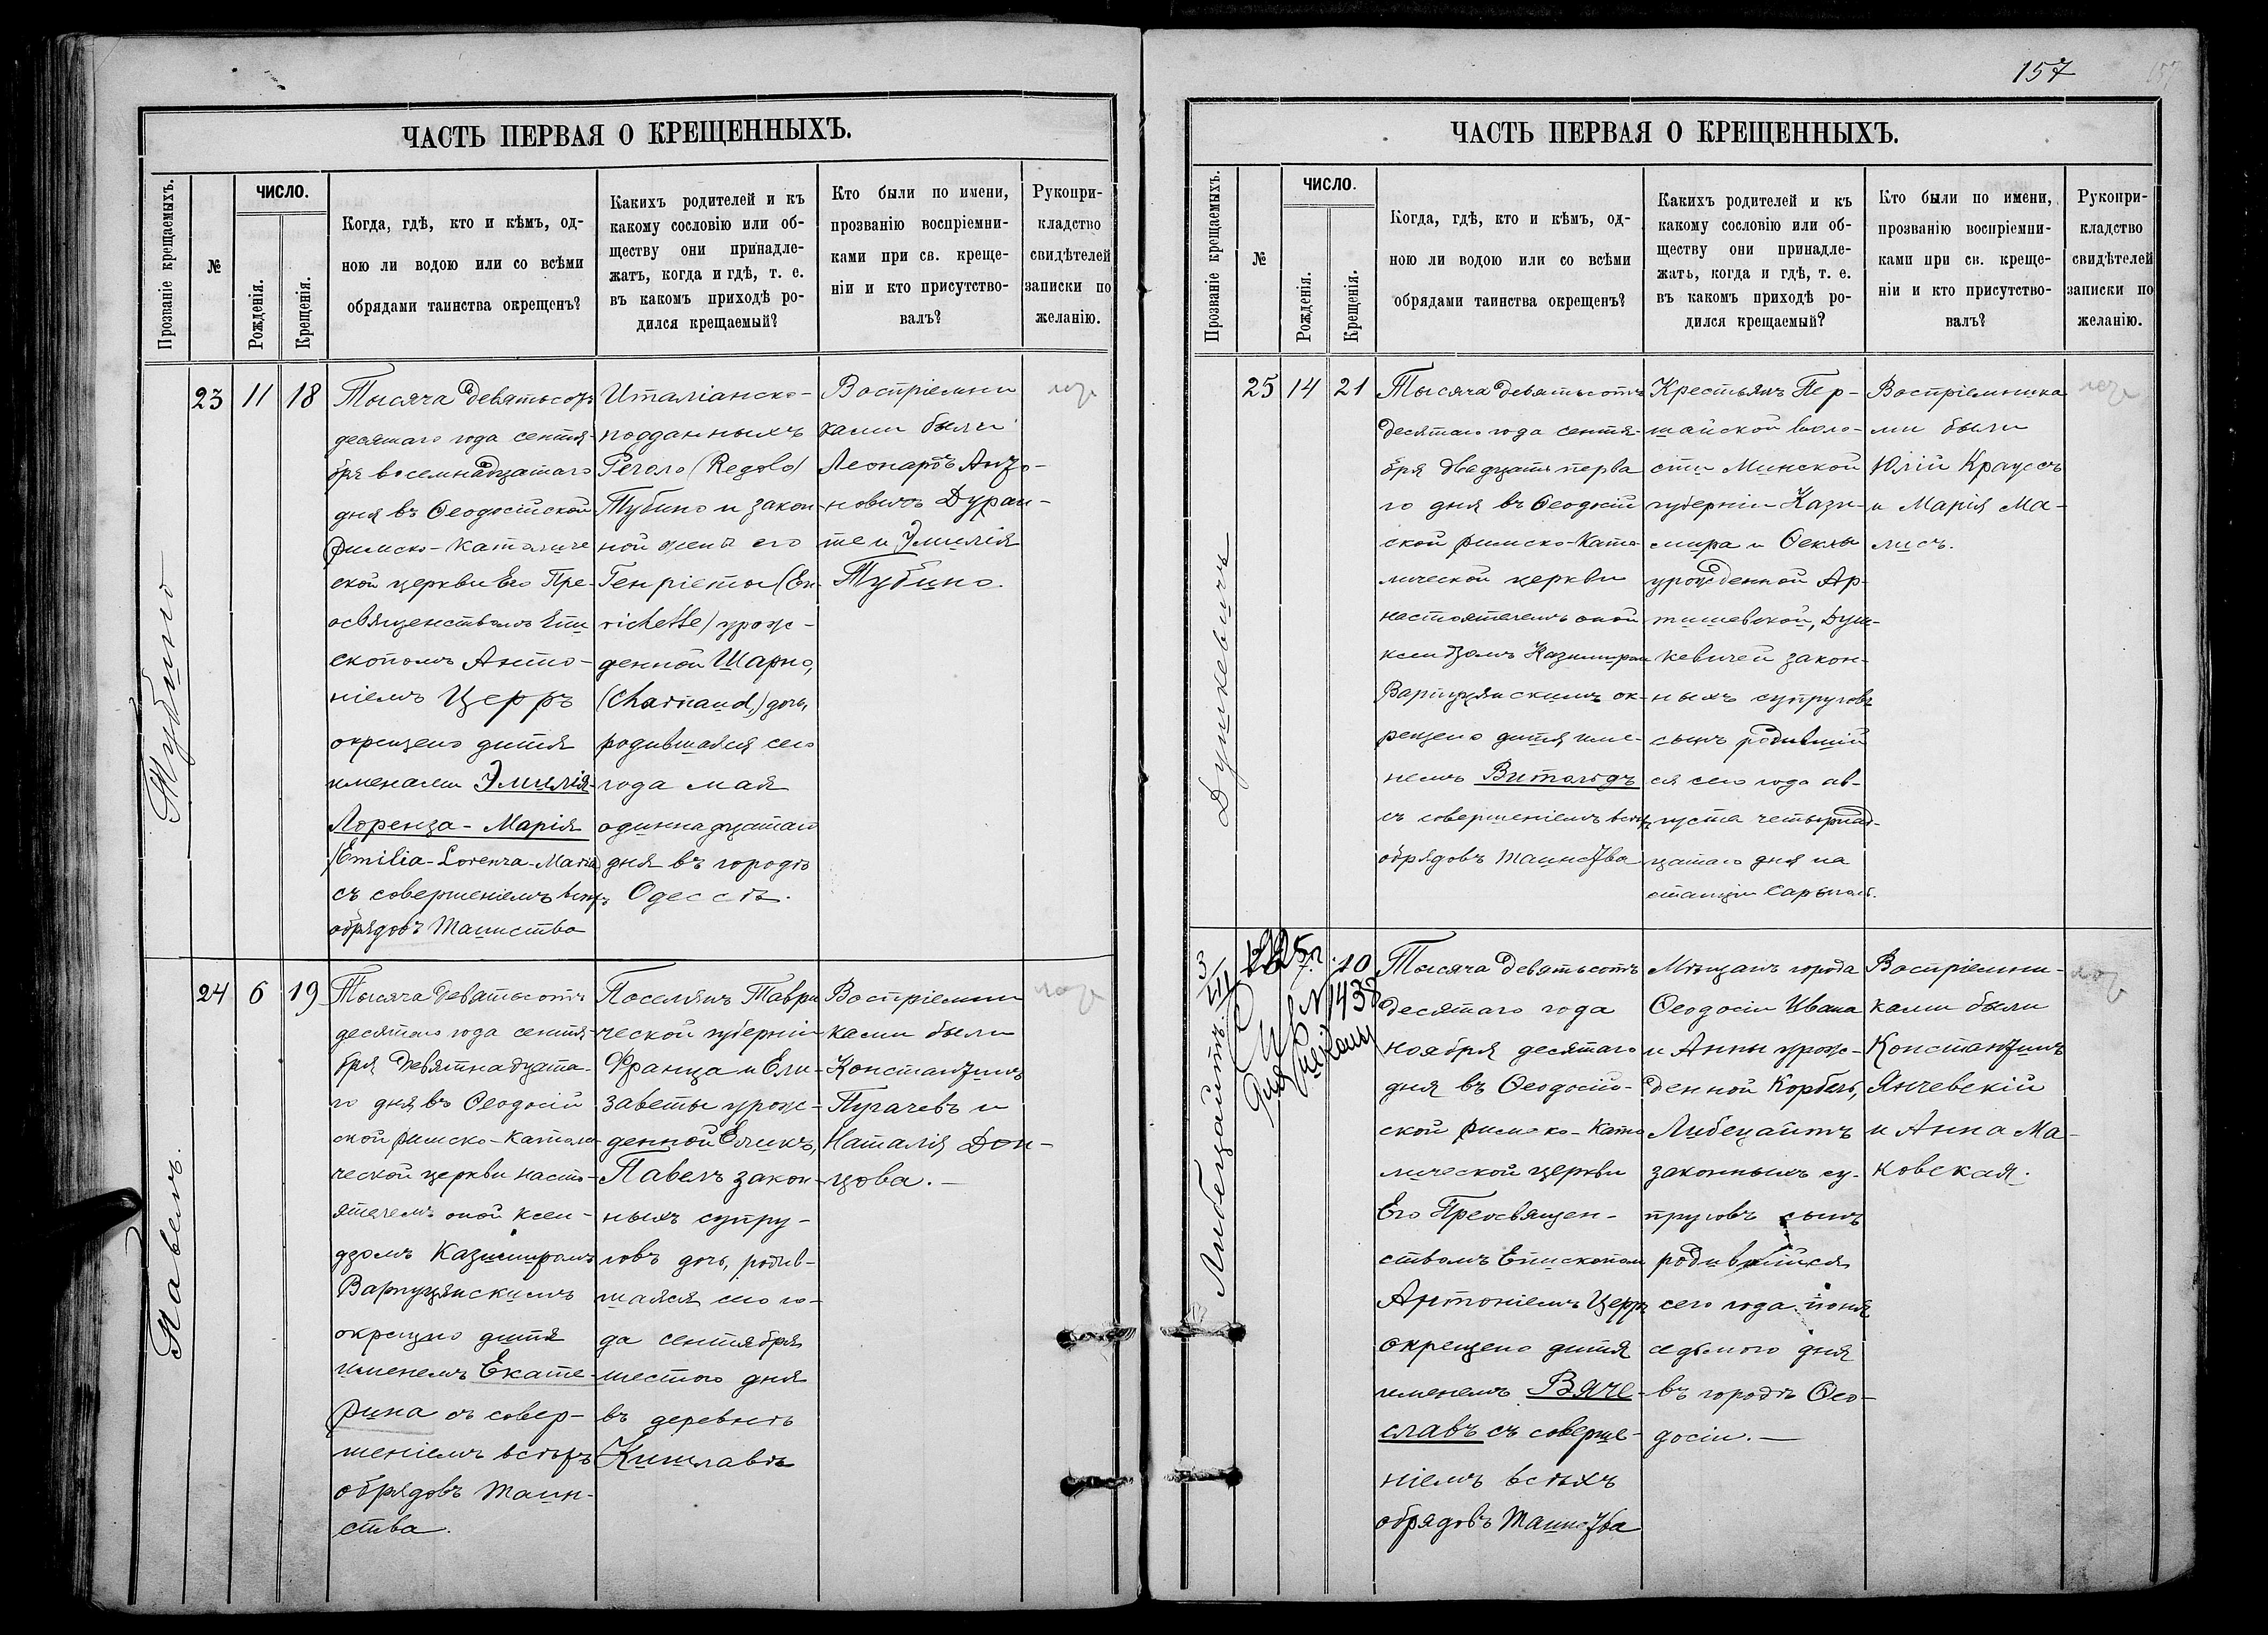 157
ЧАСТЬ ПЕРВАЯ О КРЕЩЕННЫХЪ.
Прозваніе крещаемыхъ.
№
ЧИСЛО.
Рожденія.
Крещенія.
Когда, гдѣ, кто и кѣмъ, од-
ною ли водою или со всѣми
обрядами таинства окрещенъ?
Какихъ родителей и къ
какому сословію или об-
ществу они принадле-
жатъ, когда и гдѣ, т. е.
въ какомъ приходѣ ро-
дился крещаемый?
Кто были по имени,
прозванію воспріемни-
ками при св. креще-
ніи и кто присутство-
валъ?
Рукопри-
кладство
свидѣтелей
записки по
желанію.
Тубино
23
11
18
Тысяча девятьсотъ
десятаго года сентя-
бря восемнадцатаго
дня въ Ѳеодосійской
Римско-Католиче
ской церкви Его Пре-
освященствомъ Епи
скопомъ Анто-
ніемъ Церръ
окрещено дитя
именами Эмилія-
Лоренза-Марія
/Emilia-Lorenza-Maria/
съ совершеніемъ всѣхъ
обрядовъ Таинства
Италіанско-
подданныхъ
Реголо (Regolo)
Тубино и закон
ной жены его
Генріеты (En-
richette) урож-
денной Шарно,
(Charnaud,) дочь,
родившаяся сего
года мая
одиннадцатаго
дня въ городѣ
Одессѣ.
Воспріемни
ками были
Леонардъ Анто-
новичъ Дуран-
те и Эмилія
Тубино.
Павелъ.
24
6
19
Тысяча девятьсотъ
десятаго года сентя-
бря девятнадцата-
го дня въ Ѳеодосій
ской римско-католи-
ческой церкви насто-
ятелемъ оной ксен-
дзомъ Казимиромъ
Варпуцянскимъ
окрещено дитя
именемъ Екате-
рина съ совер-
шеніемъ всѣхъ
обрядовъ Таин-
ства.
Поселянъ Таври
ческой губерніи
Франца и Ели-
заветы урож-
денной Еликъ,
Павелъ закон-
ныхъ супру-
говъ дочь, родив-
шаяся сего го-
да сентября
шестого дня
въ деревнѣ
Кишлавѣ
Воспріемни
ками были
Константинъ
Пугачевъ и
Наталія Дон-
цова.—
ЧАСТЬ ПЕРВАЯ О КРЕЩЕННЫХЪ.
Прозваніе крещаемыхъ.
№
ЧИСЛО.
Рожденія.
Крещенія.
Когда, гдѣ, кто и кѣмъ, од-
ною ли водою или со всѣми
обрядами таинства окрещенъ?
Какихъ родителей и къ
какому сословію или об-
ществу они принадле-
жатъ, когда и гдѣ, т. е.
въ какомъ приходѣ ро-
дился крещаемый?
Кто были по имени,
прозванію воспріемни-
ками при св. креще-
ніи и кто присутство-
валъ?
Рукопри-
кладство
свидѣтелей
записки по
желанію.
Душкевичъ
25
14
21
Тысяча девятьсотъ
десятаго года сентя-
бря двадцать перва
го дня въ Ѳеодосій
ской римско-като
лической церкви
настоятелемъ оной
ксендзомъ Казимиромъ
Варпуцянскимъ ок-
рещено дитя име-
немъ Витольдъ
съ совершеніемъ всѣхъ
обрядовъ Таинства
Крестьянъ Пер-
шайской воло-
сти Минской
губерніи Кази-
мира и Ѳеклы
урожденной Ар-
Душ-
кевичей закон-
ныхъ супруговъ
сынъ родивший
ся сего года ав-
густа четырнад-
цатаго дня на
станціи Сарыголь.
Воспріемника
ми были
Юлій Крауссъ
и Марія Ма-
лисъ.
Либецайтъ
10
Тысяча девятьсотъ
десятаго года
ноября десятаго
дня въ Ѳеодосій-
ской римско-като
лической церкви
Его Преосвящен-
ствомъ Епископом
Антоніемъ Церръ
окрещено дитя
именемъ Вяче-
славъ съ соверше-
ніемъ всѣхъ
обрядовъ Таинства
Мѣщанъ города
Ѳеодосіи Ивана
и Анны урож-
денной Корбель,
Либецайтъ
законныхъ су-
пруговъ сынъ
родившійся
сего года іюня
седьмого дня
въ городѣ Ѳео-
досіи.—
Воспріемни-
ками были
Константинъ
Янчевскій
и Анна Ма-
ковская.